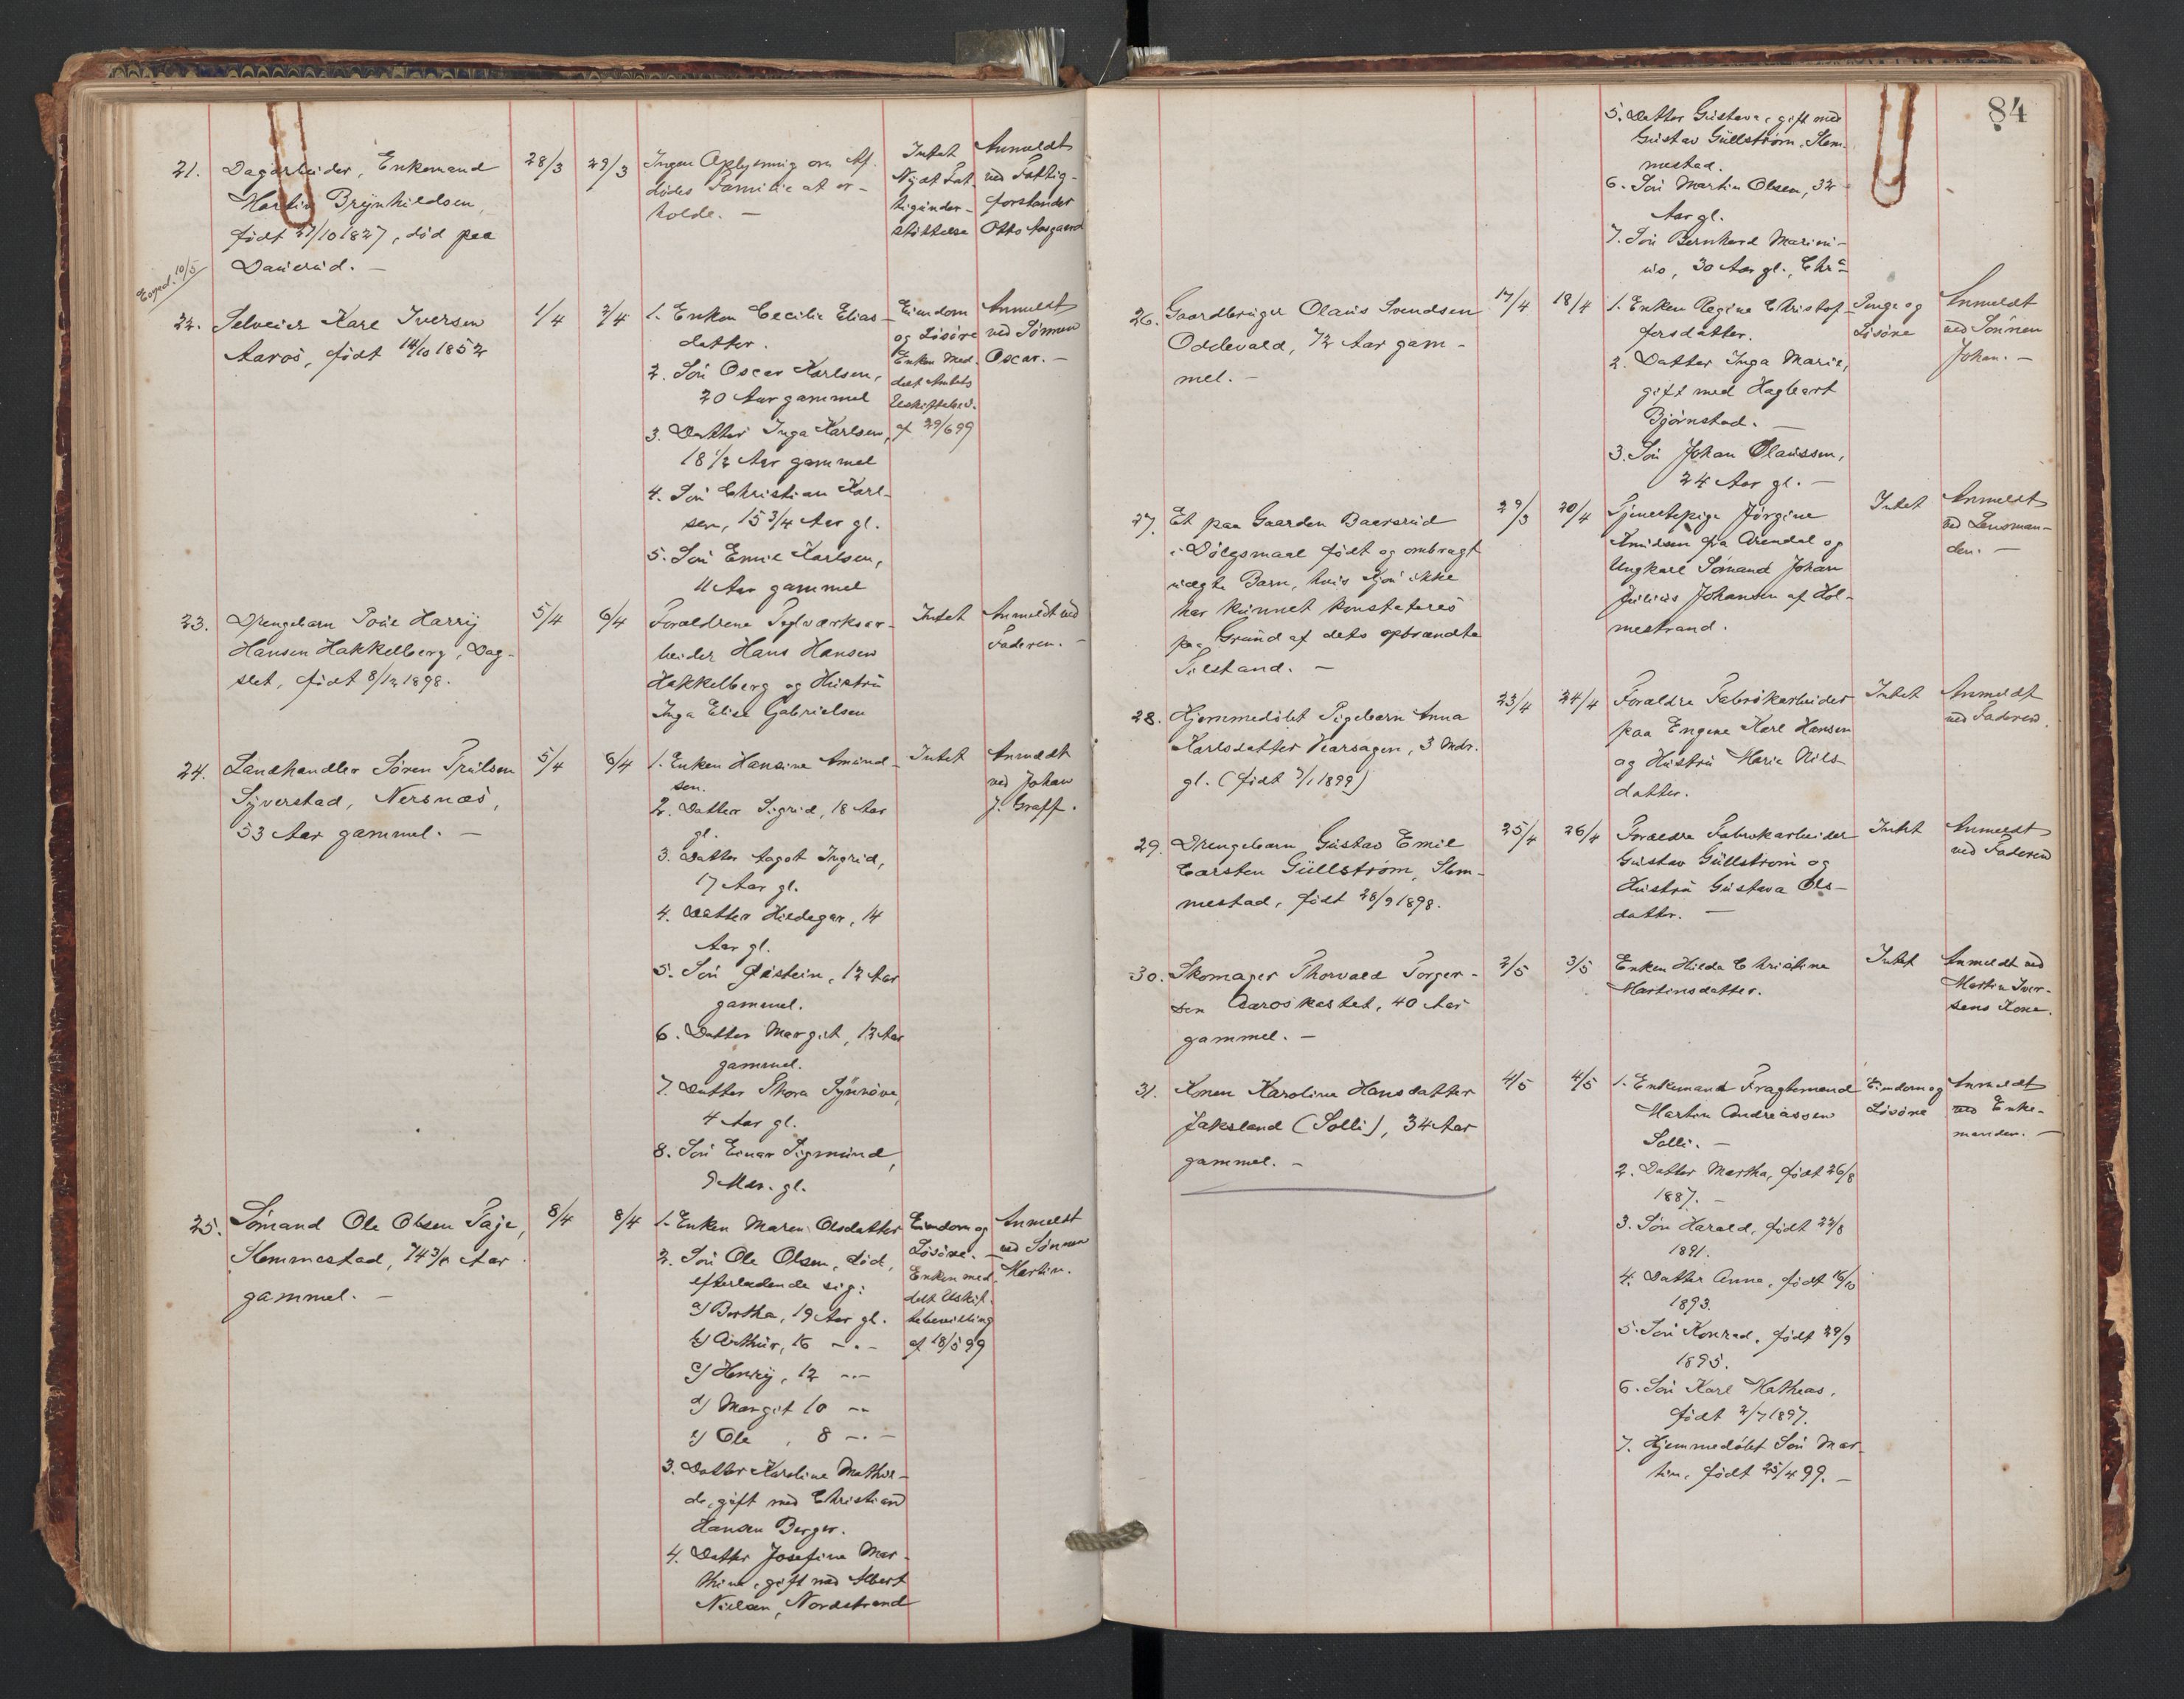 21. Dagarbeider, Enkemand
Martin Brynhildsen,
født 27/10 1827, død paa
Dauerud. —
28/3
29/3
Ingen Oplysning om Af-
dødes Familie at er-
holde. —
Intet
Nydt Fat-
tigunder-
støttelse
Anmeldt
ved Fattig-
forstander
Otto Aasgaard
Exped. 10/5
22. Selveier Karl Iversen
Aaros, født 14/10 1852
1/4
2/4
1. Enken Cecilie Elias-
datter.
2. Søn Oscar Karlsen,
20 Aar gammel
3. Datter Inga Karlsen,
18 1/2 Aar gammel
4. Søn Christian Karl-
sen, 15 3/4 Aar gl.
5. Søn Emil Karlsen,
11 Aar gammel
Eiendom
og Løsøre
Enken med-
delt Amtets
Uskiftebev.
af 29/6 99
Anmeldt
ved Sønnen
Oscar. —
23. Drengebarn Harry
Hansen Hakkelberg, Dag-
slet, født 8/12 1898.
5/4
6/4
Forældrene Teglværksar-
beider Hans Hansen
Hakkelberg og Hustru
Inga Elise Gabrielsen
Intet
Anmeldt ved
Faderen. —
24. Landhandler Søren Trulsen
Syverstad, Nersnæs,
53 Aar gammel. —
5/4
6/4
1. Enken Hansine Amund-
sen.
2. Datter Sigrid, 18 Aar
gl.
3. Datter Aagot Ingrid,
17 Aar gl.
4. Datter Hildegar, 14
Aar gl.
5. Søn Øistein, 12 Aar
gammel.
6. Datter Margit, 12 Aar
gammel.
7. Datter Thora Synnøve,
4 Aar gl.
8. Søn Einar Sigmund,
9 Mdr. gl.
Intet
Anmeldt
ved Johan
J. Graff.
25. Sømand Ole Olsen Taje,
Slemmestad, 74 3/4 Aar
gammel. —
8/4
8/4
1. Enken Maren Olsdatter
2. Søn Ole Olsen, død,
efterladende sig:
a) Bertha, 19 Aar gl.
b) Arthur, 16 —.—
c) Henry, 12 —.—
d) Margit 10 —.—
e) Ole, 8 —.—
3. Datter Karoline Mathil-
de, gift med Christian
Hansen Berger.
4. Datter Josefine Mar-
thine, gift med Albert
Nielsen, Nordstrand
Eiendom og
Løsøre. —
Enken med-
delt Uskif-
tebevilling
af 18/5 99
Anmeldt
ved Sønnen
Martin.
84
5. Datter Gustava, gift med
Gustav Güllstrøm, Slem-
mestad.
6. Søn Martin Olsen, 32
Aar gl.
7. Søn Bernhard Marini-
us, 30 Aar gl., Chra
26. Gaardbruger Olaus Svendsen
Oddevald, 72 Aar gam-
mel. —
17/4
18/4
1. Enken Regine Christof-
fersdatter.
2. Datter Inga Marie,
gift med Hagbart
Bjørnstad. —
3. Søn Johan Olaussen,
24 Aar gl. —
Penge og
Løsøre
Anmeldt
ved Sønnen
Johan. —
27. Et paa Gaarden Baarsrud
i Dølgsmaal født og ombragt
uægte Barn, hvis Kjøn ikke
har kunnet konstateres
paa Grund af dets opbrændte
Tilstand. —
29/3
20/4
Tjenestepige Jørgine
Knudsen fra Arendal og
Ungkarl Sømand Johan
Julius Johansen af Hol-
mestrand.
Intet
Anmeldt
ved Lensman-
den. —
28. Hjemmedøbt Pigebarn Anna
Karlsdatter , 3 Mdr.
gl. (født 7/1 1899)
23/4
24/4
Forældre Fabrikarbeider
paa Engene Karl Hansen
og Hustru Marie Nils-
datter.
Intet
Anmeldt
ved Faderen.
29. Drengebarn Gustav Emil
Carsten Güllstrøm, Slem-
mestad, født 28/9 1898.
25/4
26/4
Forældre Fabrikarbeider
Gustav Güllstrøm og
Hustru Gustava Ols-
datter. —
Intet
Anmeldt
ved Faderen
30. Skomager Thorvald Torger-
sen Aaroskastet, 40 Aar
gammel. —
2/5
3/5
Enken Hilda Christine
Martinsdatter.
Intet
Anmeldt ved
Martin Iver-
sens Kone.
31. Konen Karoline Hansdatter
Jaksland (Solli), 34 Aar
gammel. —
4/5
4/5
1. Enkemand Fragtemand
Martin Andreassen
Solli. —
2. Datter Martha, født 26/8
1887. —
3. Søn Harald, født 22/8
1891.
4. Datter Anna, født 16/10
1893.
5. Søn Konrad, født 29/9
1895.
6. Søn Karl Mathias,
født 2/7 1897.
7. Hjemmedøbt Søn Mar-
tin, født 25/4 99. —
Eiendom og
Løsøre
Anmeldt
ved Enke-
manden. —